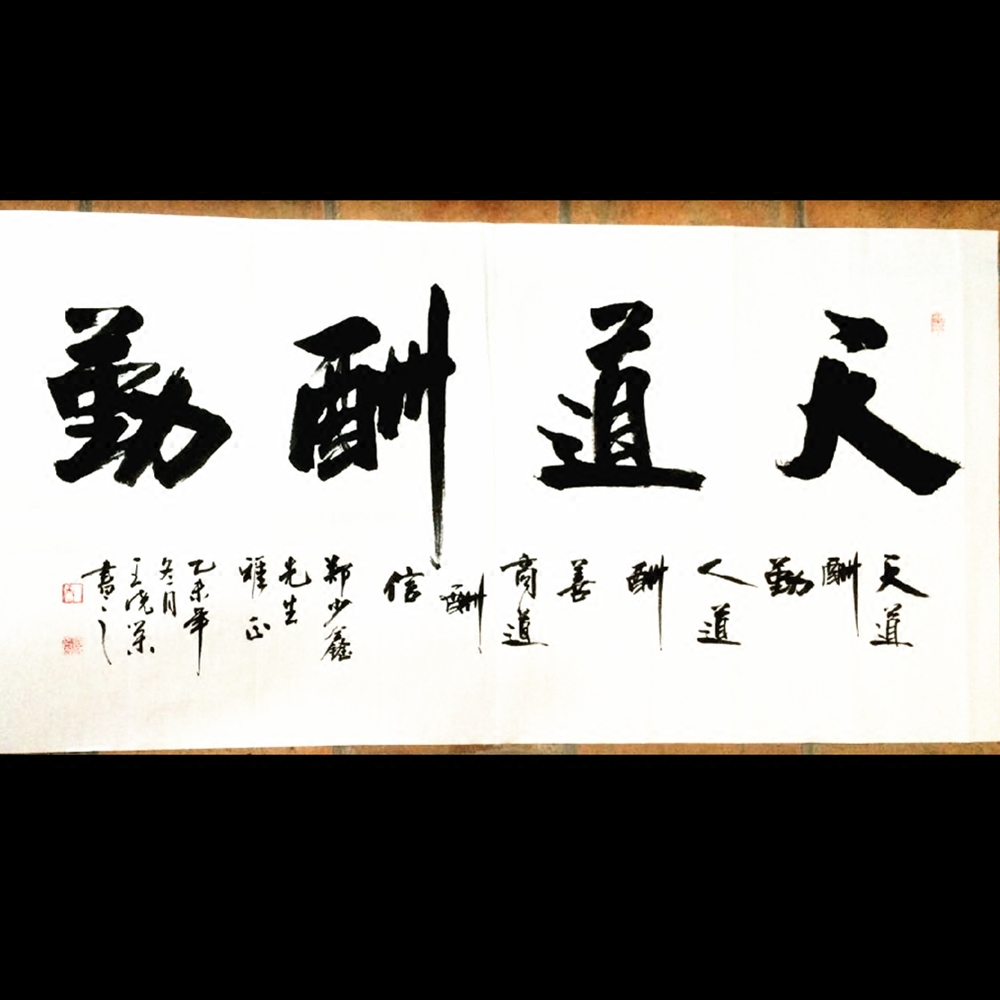 天道酬勤
天道
酬
勤
人道
酬
善
商道
酬
信
郑少鑫
先生
雅正
乙未年
冬月
書之